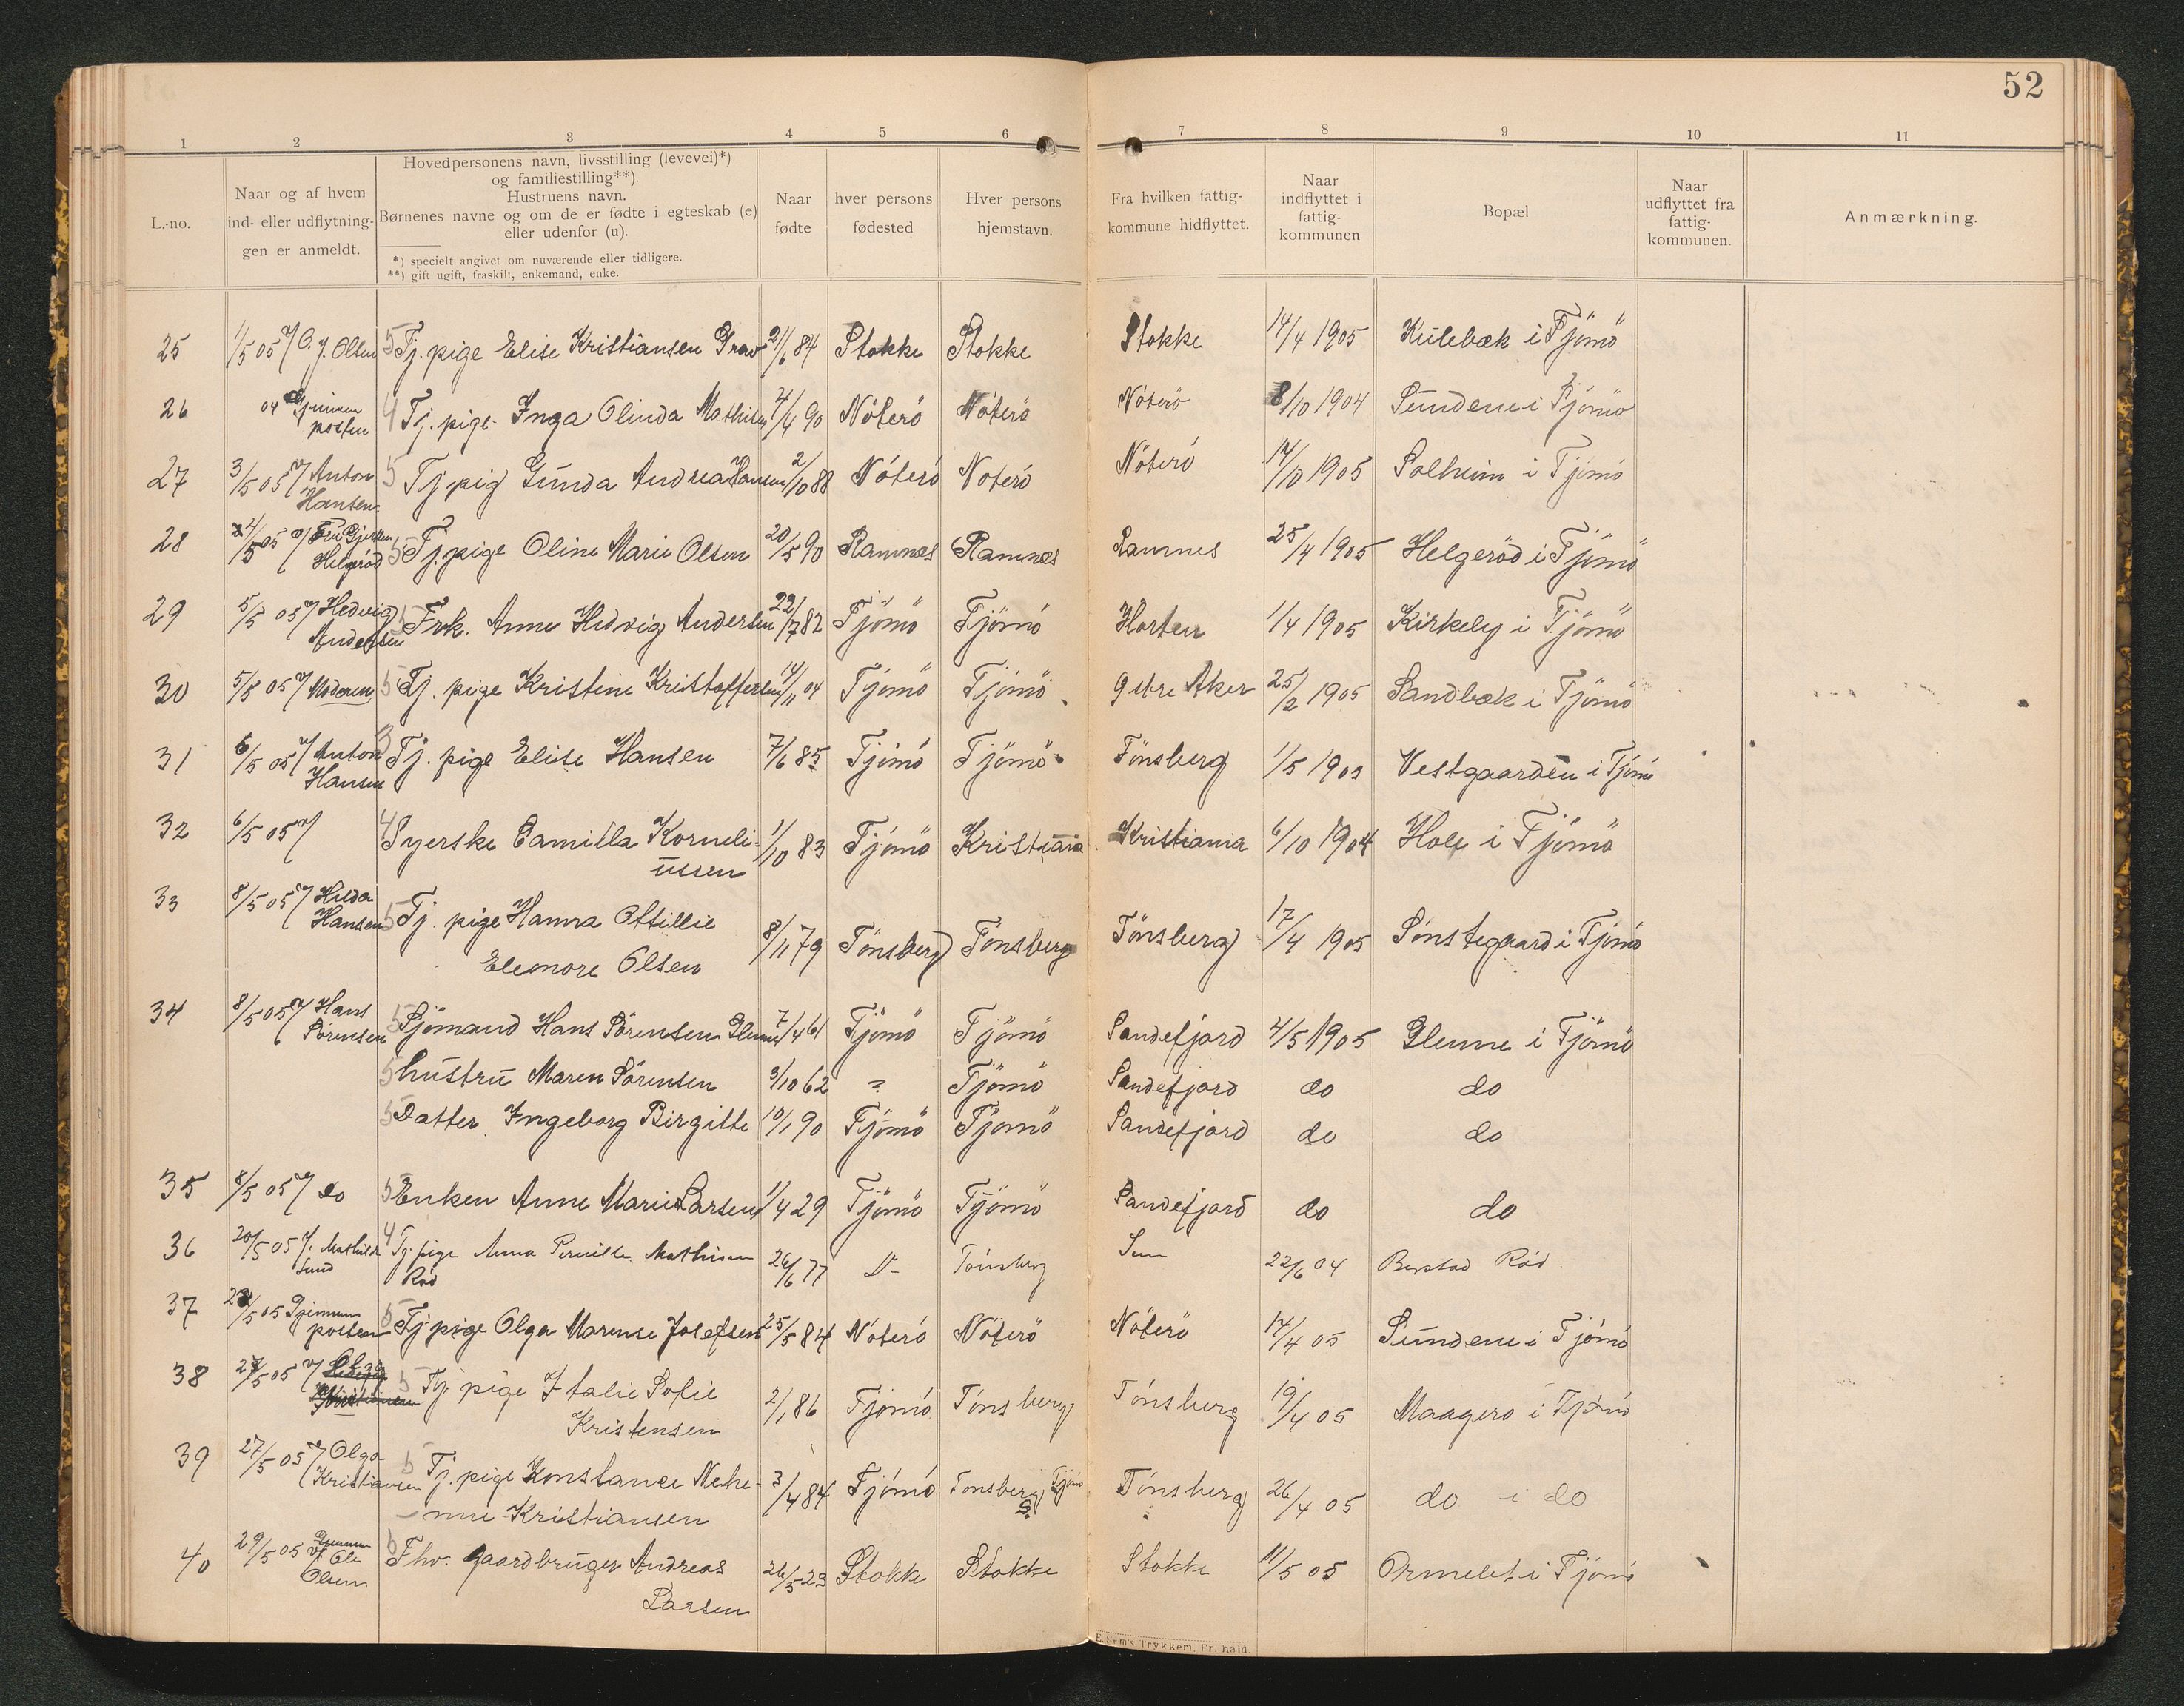 52
1 2 3 4 5 6 7 8 9 10 11
L.-no.
Naar og af hvem
ind- eller udflytnin-
gen er anmeldt.
Hovedpersonens navn, livsstilling (levevei)*)
og familiestilling**).
Hustruens navn.
Børnenes navne og om de er fødte i egteskab (e)
eller udenfor (u).
*) specielt angivet om nuværende eller tidligere.
**) gift ugift, fraskilt, enkemand, enke.
Naar
fødte
hver persons
fødested
Hver persons
hjemstavn.
Fra hvilken fattig-
kommune hidflyttet.
Naar
indflyttet i
fattig-
kommunen
Bopæl
Naar
udflyttet fra
fattig-
kommunen.
Anmærkning.
25 1/5 05 v/ O. J. Olsen 5 Tj. pige Elise Kristiansen Grav 21/6 84 Stokke Stokke Stokke 14/4 1905 Kulebæk i Tjömö
26 04 Gjennem 4 Tj. pige Inga Olinda Mathisen 7/4 90 Nöterö Nöterö Nöterö 8/10 1904 Sundene i Tjömö
posten
27 3/5 05 v/ Anton 5 Tj. pig Gunda Andrea Hansen 2/10 88 Nöterö Nöterö Nöterö 14/10 1905 Solheim i Tjömö
Hansen
28 4/5 05 v/ Fru Gjertsen 5 Tj. pige Oline Marie Olsen 20/5 90 Ramnes Ramnes Ramnes 25/4 1905 Helgeröd i Tjömö
Helgeröd
29 5/5 05 v/ Hedvig 5 Frk. Anne Hedvig Andersen 22/7 82 Tjömö Tjömö Horten 1/4 1905 Kirkely i Tjömö
Andersen
30 5/5 05 v/ Moderen 5 Tj. pige Kristine Kristoffersen 14/11 04 Tjömö Tjömö Östre Aker 25/2 1905 Sandbæk i Tjömö
31 6/5 05 v/ Anton 3 Tj. pige Elise Hansen 7/6 85 Tjömö Tjömö Tönsberg 1/5 1903 Vestgaarden i Tjömö
Hansen
32 6/5 05 v/ 4 Syerske Camilla Korneli- 1/10 83 Tjömö Kristiania Kristiania 6/10 1904 Hole i Tjömö
ussen
33 8/5 05 v/ Hilda 5 Tj. pige Hanna Ottillie
Hansen
Eleonore Olsen 8/11 79 Tönsberg Tönsberg Tönsberg 17/4 1905 Sönstegaard i Tjömö
34 8/5 05 v/ Hans 5 Sjömand Hans Sörensen Glenne 7/4 61 Tjömö Tjömö Sandefjord 4/5 1905 Glenne i Tjömö
Sörensen
5 hustru Maren Sörensen 3/10 62 ? Tjömö Sandefjord do do
5 Datter Ingeborg Birgitte 10/1 90 Tjömö Tjömö Sandefjord do do
35 8/5 05 v/ do 5 Enken Anne Marie Larsen 1/4 29 Tjömö Tjömö Sandefjord do do
36 20/5 05 v. Mathilde 4 Tj. pige Anna Pernille Mathisen 26/6 77 D- Tönsberg Sem 22/6 04 Röd
Lund
Röd
37 /5 05 Gjennem 5 Tj pige Olga Marense Josefsen 25/5 84 Nöterö Nöterö Nöterö 14/4 05 Sundene i Tjömö
posten
38 27/5 05 v/ 5 Tj. pige Italie Sofie
Kristensen 2/1 86 Tjömö Tönsberg Tönsberg 19/4 05 Maagerö i Tjömö
39 27/5 05 v/ Olga 5 Tj. pige Konstance Nehe-
Kristiansen
nne Kristiansen 3/4 84 Tjömö Tönsberg Tjömö Tönsberg 26/4 05 do i do
40 29/5 05 Gjennem 5 Fhv. gaardbruger Andreas 26/5 23 Stokke Stokke Stokke 11/5 05 Ormelet i Tjömö
v/ Ole
Olsen
Larsen